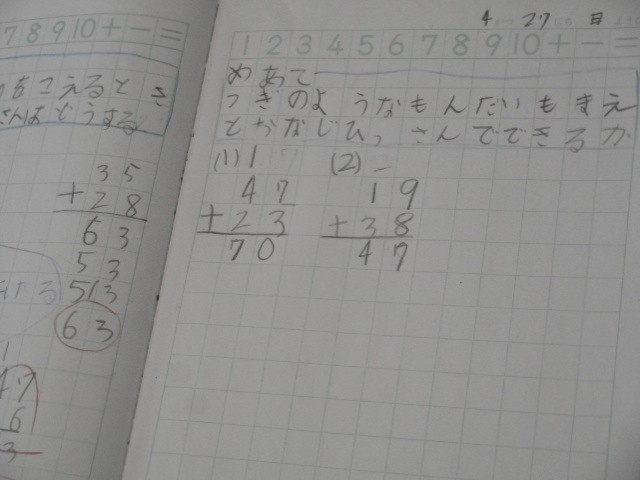 7 8 9 10 + − =
こえるとき
さんはどうする
35
+28
63
53
513
63
1
47
6
3
4 27 日
1 2 3 4 5 6 7 8 9 10 + − =
めあて
つぎのようなもんだいもまえ
とおなじひっさんでできるか
(1) 1
47
+23
70
(2)
19
+38
47